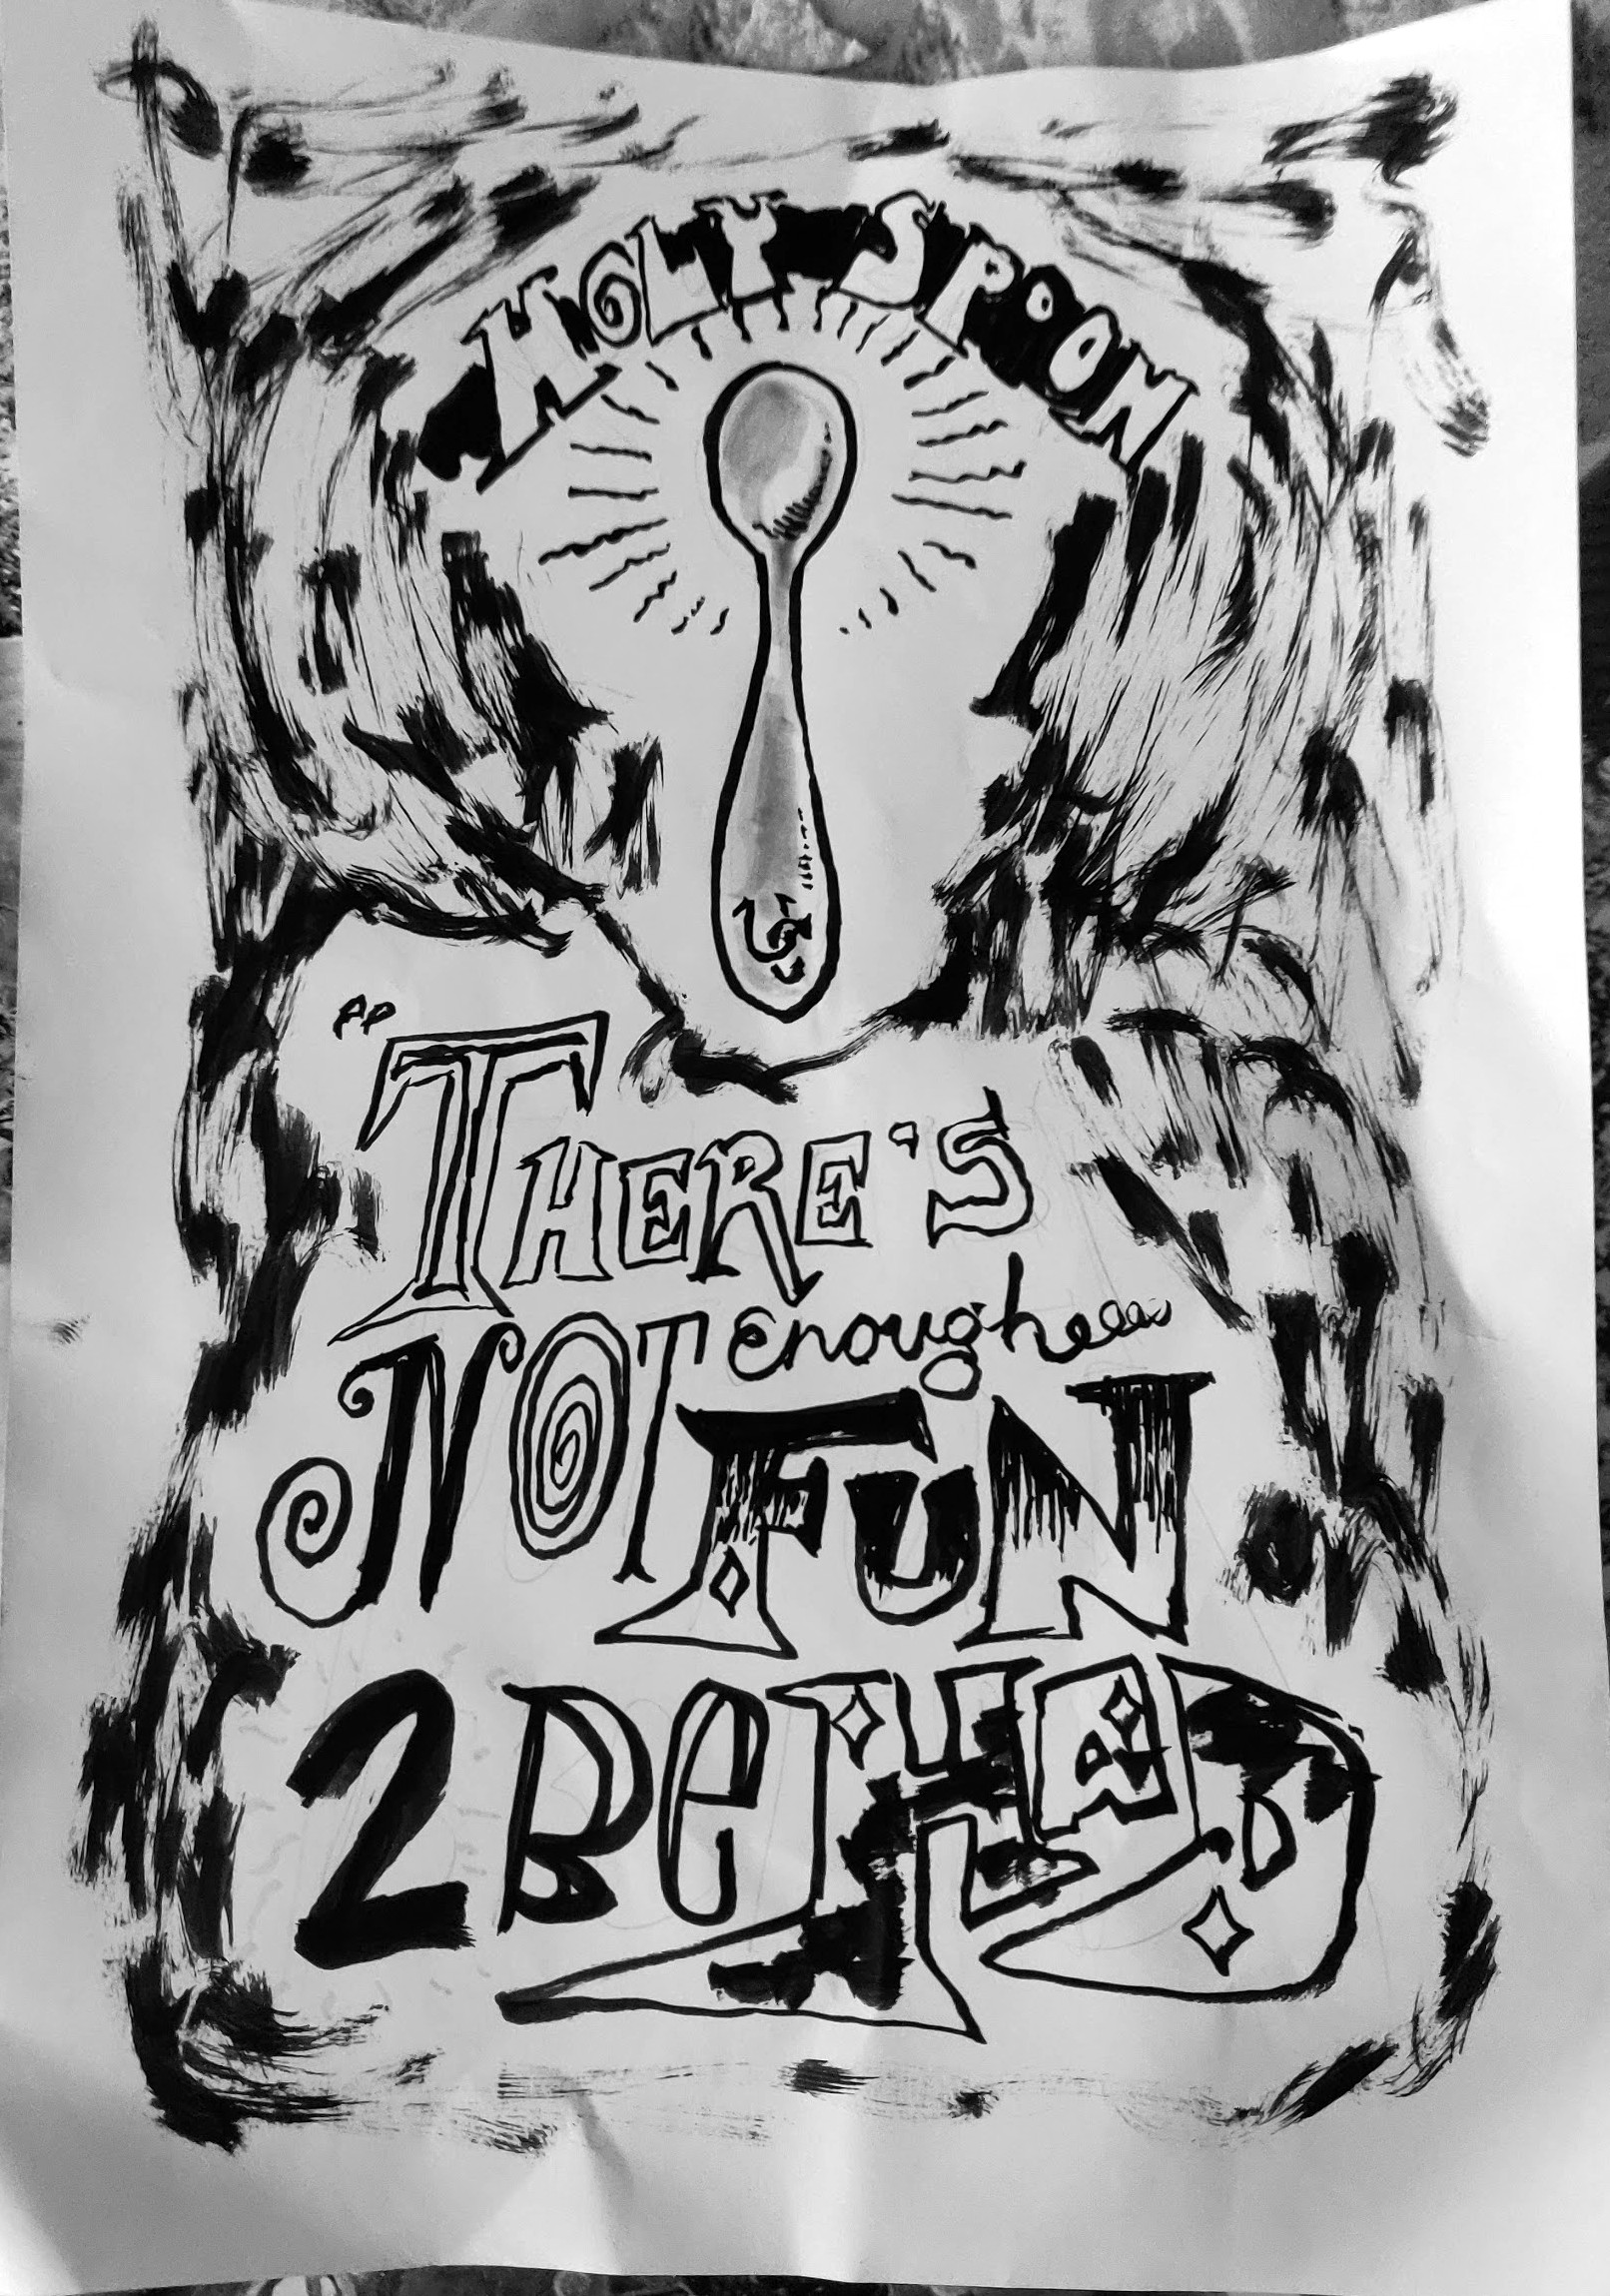 HOLY SPOON
"THERE'S
NOT enough
FUN
2 Be HAD